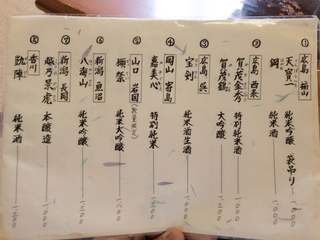 ① 広島 福山
天寳一 純米吟醸 袋吊り 1,000
鋼 純米酒
② 広島 西条
賀茂金秀 特別純米酒
賀茂鶴 大吟醸 1,200
③ 広島 呉
宝剣 純米生酒
④ 岡山 寄島
嘉美心 特別純米
⑤ 山口 岩国 (数量限定)
獺祭 純米大吟醸
⑥ 新潟 魚沼
八海山 純米吟醸 1,200
⑦ 新潟 長岡
越乃景虎 本醸造 1,000
⑧ 香川
凱陣 純米酒 1,200